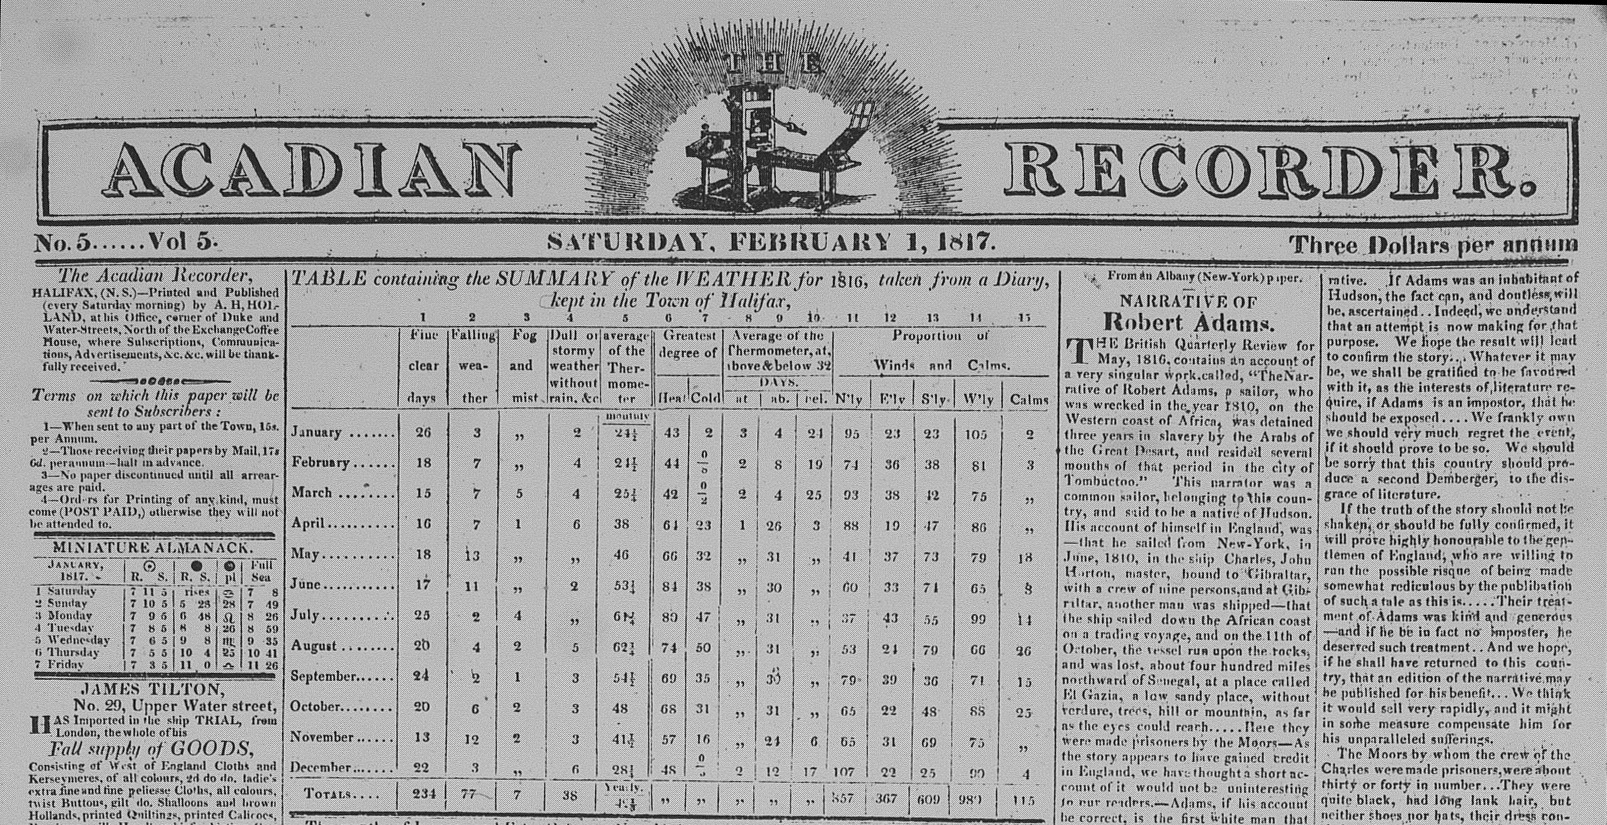 THE
ACADIAN RECORDER.
No. 5......Vol 5.
SATURDAY, FEBRUARY 1, 1817.
Three Dollars per annum
The Acadian Recorder,
HALIFAX, (N. S.)—Printed and Published
(every Saturday morning) by A. H, HOL-
LAND, at his Office, corner of Duke and
Water-Streets, North of the Exchange Coffee
House, where Subscriptions, Communica-
tions, Advertisements, &c. &c. will be thank-
fully received.
Terms on which this paper will be
sent to Subscribers :
1—When sent to any part of the Town, 15s.
per Annum.
2—Those receiving their papers by Mail, 17s
6d. per annum—half in advance.
3—No paper discontinued until all arrear-
ages are paid.
4—Orders for Printing of any kind, must
come (POST PAID,) otherwise they will not
be attended to.
MINIATURE ALMANACK.
JANUARY, 1817. R. S. R. S. pl Full Sea
1 Saturday 7 11 5 rises 7 8
2 Sunday 7 10 5 5 28 28 7 49
3 Monday 7 9 5 6 48 ♌ 8 26
4 Tuesday 7 8 5 8 8 26 8 59
5 Wednesday 7 6 5 9 8 ♍ 9 35
6 Thursday 7 5 5 10 4 25 10 41
7 Friday 7 3 5 11 0 ♎ 11 26
JAMES TILTON,
No. 29, Upper Water street,
HAS Imported in the ship TRIAL, from
London, the whole of his
Fall supply of GOODS,
Consisting of West of England Cloths and
Kerseymeres, of all colours, 2d do do. ladie's
extra fine and fine peliesse Cloths, all colours,
twist Buttons, gilt do. Shalloons and brown
Hollands, printed Quiltings, printed Calicoes,
TABLE containing the SUMMARY of the WEATHER for 1816, taken from a Diary,
kept in the Town of Halifax,
1 2 3 4 5 6 7 8 9 10 11 12 13 14 15
Fine Falling Fog Dull or average Greatest Average of the Proportion of
clear wea- and stormy of the degree of Thermometer, at, Winds and Calms.
days ther mist weather Ther- above & below 32
without mome- DAYS.
rain, &c ter Heat Cold at ab. bel. N'ly E'ly S'ly W'ly Calms
monthly
January ....... 26 3 ,, 2 24½ 43 2 3 4 24 95 23 23 105 2
February ...... 18 7 ,, 4 21½ 44 0 2 8 19 74 36 38 81 3
March ......... 15 7 5 4 25¼ 42 0 2 2 4 25 93 38 42 75 ,,
April .......... 16 7 1 6 38 64 23 1 26 3 88 19 47 86 ,,
May .......... 18 13 ,, ,, 46 66 32 ,, 31 ,, 41 37 73 79 18
June .......... 17 11 ,, 2 53¼ 84 38 ,, 30 ,, 60 33 74 65 8
July ......... 25 2 4 ,, 80 47 ,, 31 ,, 37 43 55 99 14
August ....... 20 4 2 5 62¼ 74 50 ,, 31 ,, 53 24 79 66 26
September...... 24 2 1 3 54½ 69 35 ,, 30 ,, 79 39 36 71 15
October........ 20 6 2 3 48 68 31 ,, 31 ,, 65 22 48 88 25
November ...... 13 12 2 3 41½ 57 16 ,, 24 6 65 31 69 75 ,,
December ....... 22 3 ,, 6 28¼ 48 0 2 12 17 107 22 25 99 4
Yearly.
TOTALS.... 234 77 7 38 ,, ,, ,, ,, ,, 857 367 609 989 115
From an Albany (New-York) paper.
NARRATIVE OF
Robert Adams.
THE British Quarterly Review for
May, 1816, contains an account of
a very singular work, called, "The Nar-
rative of Robert Adams, a sailor, who
was wrecked in the year 1810, on the
Western coast of Africa, was detained
three years in slavery by the Arabs of
the Great Desart, and resided several
months of that period in the city of
Tombuctoo." This narrator was a
common sailor, belonging to this coun-
try, and said to be a native of Hudson.
His account of himself in England, was
—that he sailed from New-York, in
June, 1810, in the ship Charles, John
Horton, master, bound to Gibraltar,
with a crew of nine persons, and at Gib-
raltar, another man was shipped—that
the ship sailed down the African coast
on a trading voyage, and on the 11th of
October, the vessel run upon the rocks,
and was lost, about four hundred miles
northward of Senegal, at a place called
El Gazia, a low sandy place, without
verdure, trees, hill or mounthin, as far
as the eyes could reach.....Here they
were made prisoners by the Moors—As
the story appears to have gained credit
in England, we have thought a short ac-
count of it would not be uninteresting
to our readers.—Adams, if his account
be correct, is the first white man that
rative. If Adams was an inhabitant of
Hudson, the fact can, and doutless, will
be, ascertained.. Indeed, we understand
that an attempt is now making for that
purpose. We hope the result will lead
to confirm the story... Whatever it may
be, we shall be gratified to be favoured
with it, as the interests of literature re-
quire, if Adams is an impostor, that he
should be exposed.....We frankly own
we should very much regret the event,
if it should prove to be so. We should
be sorry that this country should pro-
duce a second Demberger, to the dis-
grace of literature.
If the truth of the story should not be
shaken, or should be fully confirmed, it
will prove highly honourable to the gen-
tlemen of England, who are willing to
run the possible risque of being made
somewhat rediculous by the publibation
of such a tale as this is.....Their treat-
ment of Adams was kind and generous
—and if he be in fact no imposter, he
deserved such treatment.. And we hope,
if he shall have returned to this coun-
try, that an edition of the narrative may
be published for his benefit...We think
it would sell very rapidly, and it might
in some measure compensate him for
his unparalleled sufferings.
The Moors by whom the crew of the
Charles were made prisoners, were about
thirty or forty in number...They were
quite black, had long lank hair, but
neither shoes nor hats, their dress con-